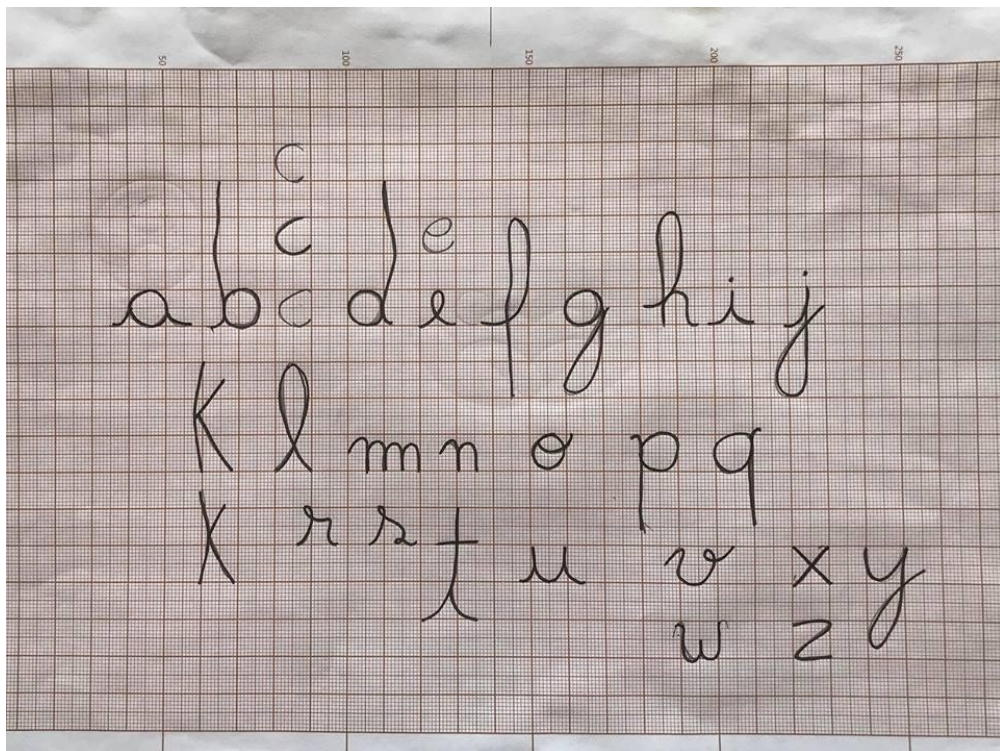 50 100 150 200 250
c
c e
a b c d e f g h i j
K l m n o p q
K r s t u v x y
w z